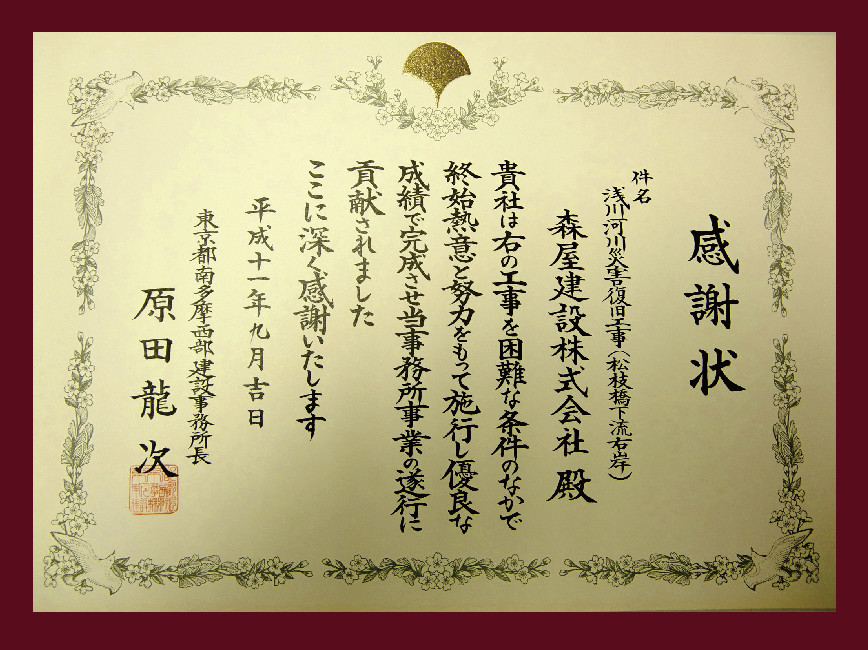 感謝状
件名
浅川河川災害復旧工事(松枝橋下流右岸)
森屋建設株式会社 殿
貴社は右の工事を困難な条件のなかで
終始熱意と努力をもって施行し優良な
成績で完成させ当事務所事業の遂行に
貢献されました
ここに深く感謝いたします
平成十一年九月吉日
東京都南多摩西部建設事務所長
原田龍次